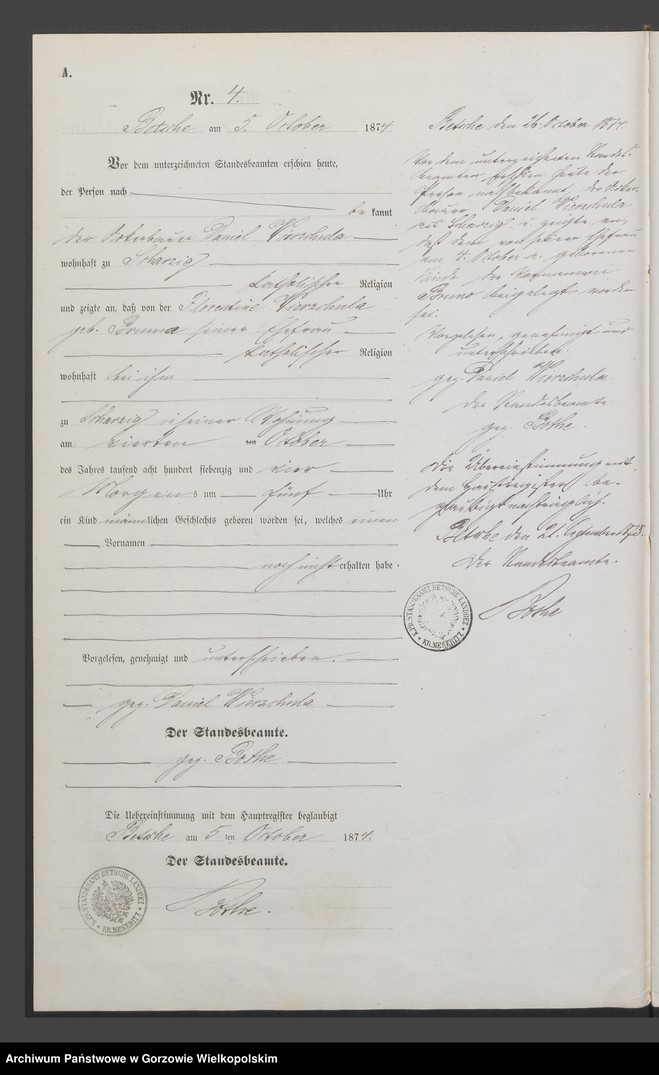 A.
Nr. 4.
Betsche am 5. October 1874.
Vor dem unterzeichneten Standesbeamten erschien heute,
der Person nach
be kannt
der Ackerbauer Daniel Wierzchula
wohnhaft zu Scharzig
katholischer Religion
und zeigte an, daß von der Florentine Wierzchula
geb. Brunna seiner Ehefrau
katholischer Religion
wohnhaft bei ihm
zu Scharzig in seiner Wohnung
am vierten October
des Jahres tausend acht hundert siebenzig und vier
Morgens um fünf Uhr
ein Kind männlichen Geschlechts geboren worden sei, welches einen
Vornamen
noch nicht erhalten habe.
Vorgelesen, genehmigt und unterschrieben.
gez. Daniel Wierzchula
Der Standesbeamte.
gez. Bothe
Die Uebereinstimmung mit dem Hauptregister beglaubigt
Betsche am 5ten October 1874.
Der Standesbeamte.
Bothe.
K.PR.STANDESAMT BETSCHE LANDBEZ. * KR.MESERITZ *
Betsche den 26. October 1874
Vor dem unterzeichneten Standes-
beamten erschien heute der
Person nach bekannt, der Acker-
bauer Daniel Wierzchula
aus Scharzig u. zeigte an,
daß dem von seiner Ehefrau
am 4. October cr. geborenen
Kinde der Vorname
Bruno beigelegt worden
sei.
Vorgelesen, genehmigt und
unterschrieben.
gez. Daniel Wierzchula
Der Standesbeamte
gez. Bothe.
Die Uebereinstimmung mit
dem Hauptregister be-
glaubigt nachträglich.
Betsche den 21. September 1875.
Der Standesbeamte.
Bothe
K.PR.STANDESAMT BETSCHE LANDBEZ. * KR.MESERITZ *
Archiwum Państwowe w Gorzowie Wielkopolskim